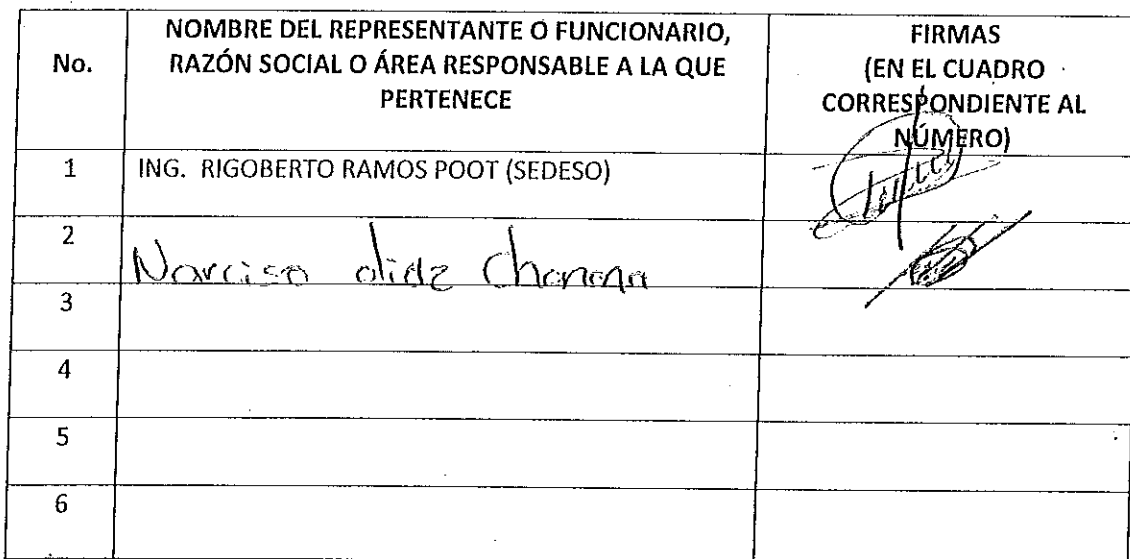 No.
NOMBRE DEL REPRESENTANTE O FUNCIONARIO,
RAZÓN SOCIAL O ÁREA RESPONSABLE A LA QUE
PERTENECE
FIRMAS
(EN EL CUADRO
CORRESPONDIENTE AL
NÚMERO)
1 ING. RIGOBERTO RAMOS POOT (SEDESO)
2 Narciso
3
4
5
6